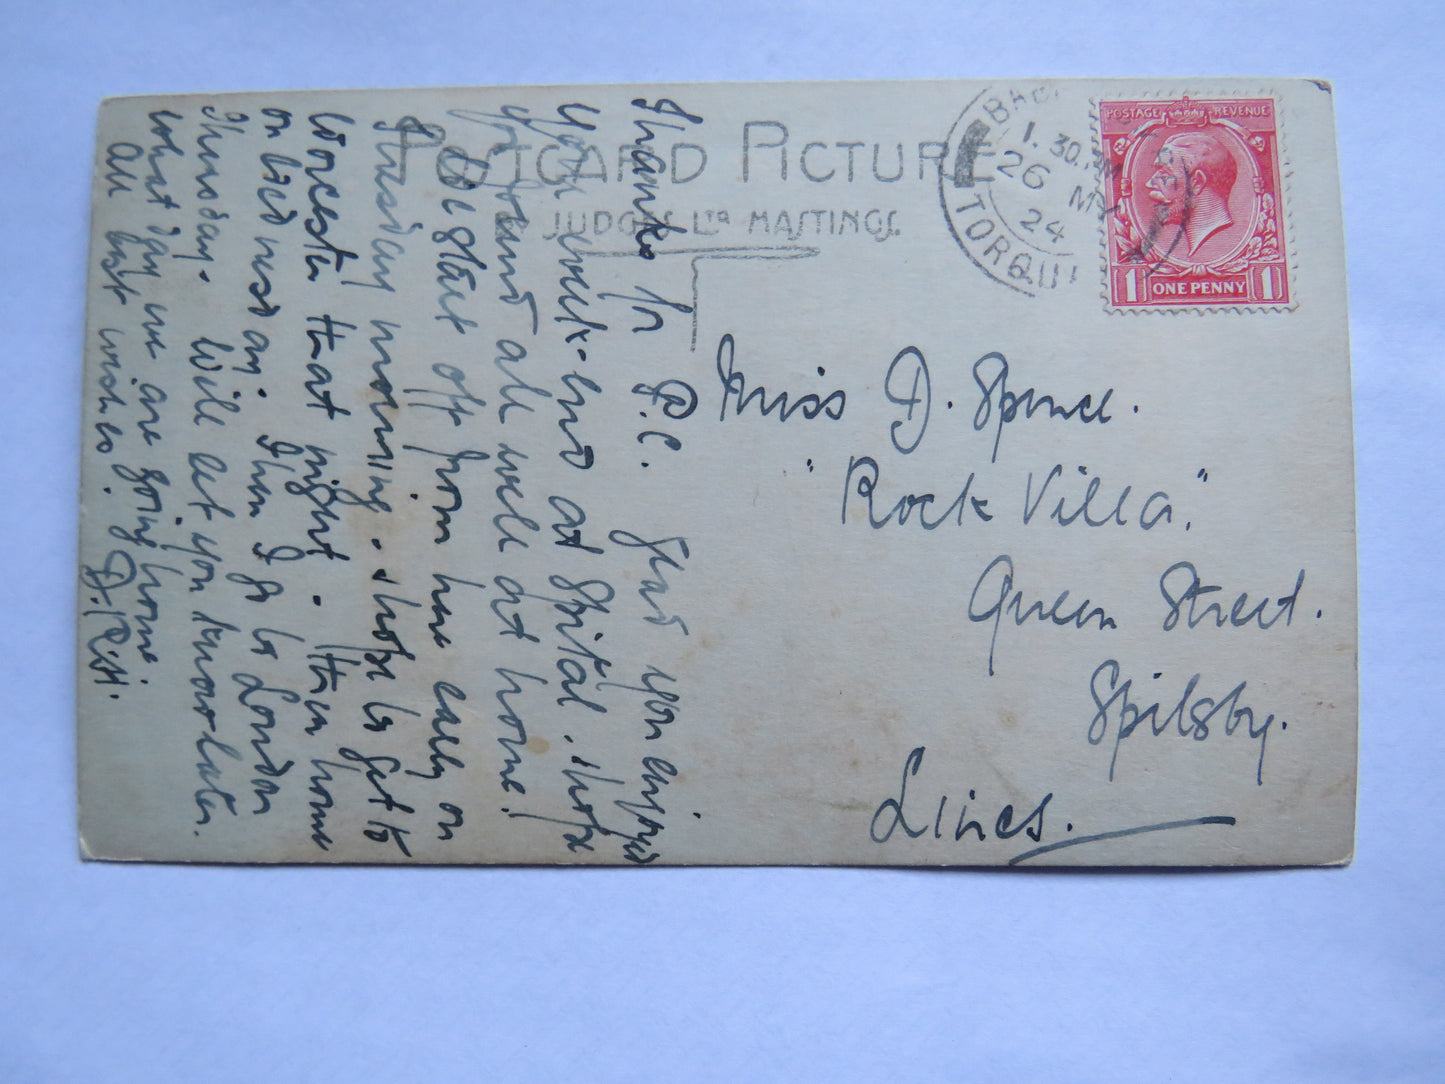 POSTCARD PICTURE
JUDGES LTD HASTINGS.
BABB
1.30 PM
26 MY
24
TORQUAY
POSTAGE REVENUE
1 ONE PENNY 1
Miss D. Spence.
"Rock Villa,"
Queen Street.
Spilsby.
Lincs.
Thanks for P.C. Glad you enjoyed
your week-end at Spital. Hope
you found all well at home!
We start off from here early on
Tuesday morning & hope to get to
Worcester that night. Then home
on Wednesday. Then I go to London
Thursday. Will let you know later.
what day we are going home.
All best wishes. D.R.H.